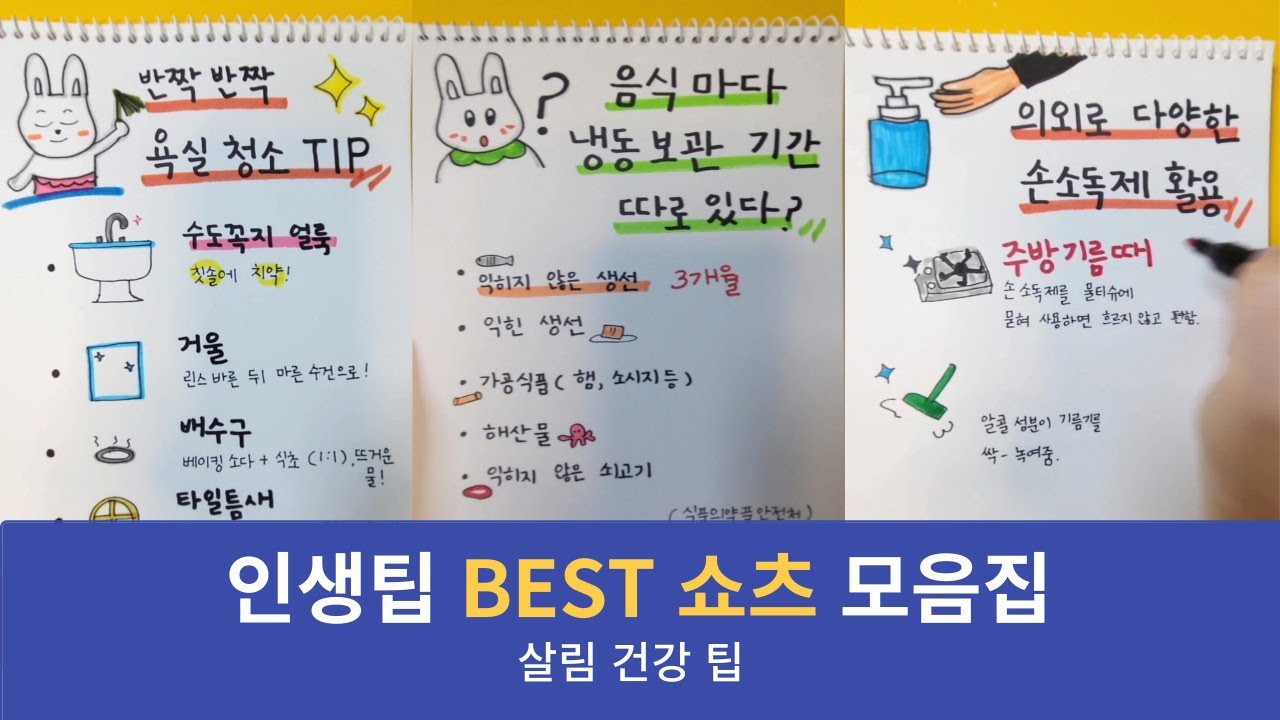 반짝 반짝
욕실 청소 TIP
수도꼭지 얼룩
칫솔에 치약!
거울
린스 바른 뒤 마른 수건으로!
배수구
베이킹 소다 + 식초 (1:1), 뜨거운
물!
타일틈새
?
음식 마다
냉동 보관 기간
따로 있다?
익히지 않은 생선 3개월
익힌 생선
가공식품 ( 햄, 소시지 등 )
해산물
익히지 않은 쇠고기
( 식품의약품안전처 )
의외로 다양한
손소독제 활용
주방 기름때
손 소독제를 물티슈에
묻혀 사용하면 흐르지 않고 편함.
알콜 성분이 기름기를
싹 - 녹여줌.
인생팁 BEST 쇼츠 모음집
살림 건강 팁